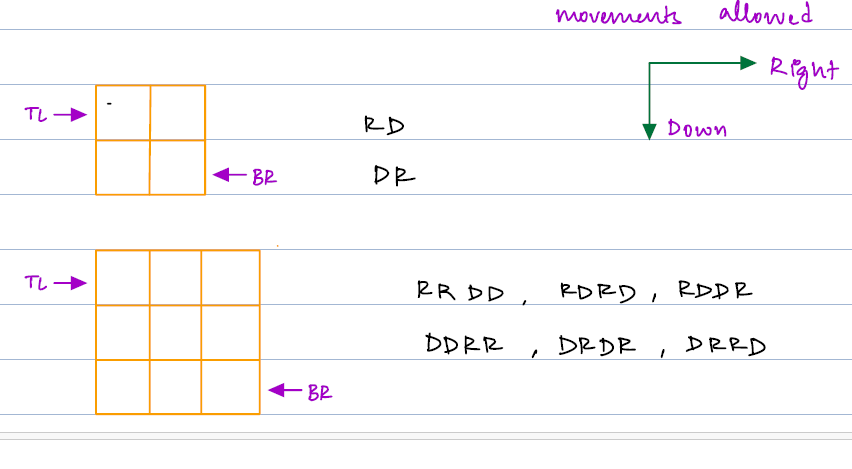 movements allowed
Right
Down
TL
RD
BR
DR
TL
RRDD, RDRD, RDDR
DDRR, DRDR, DRRD
BR